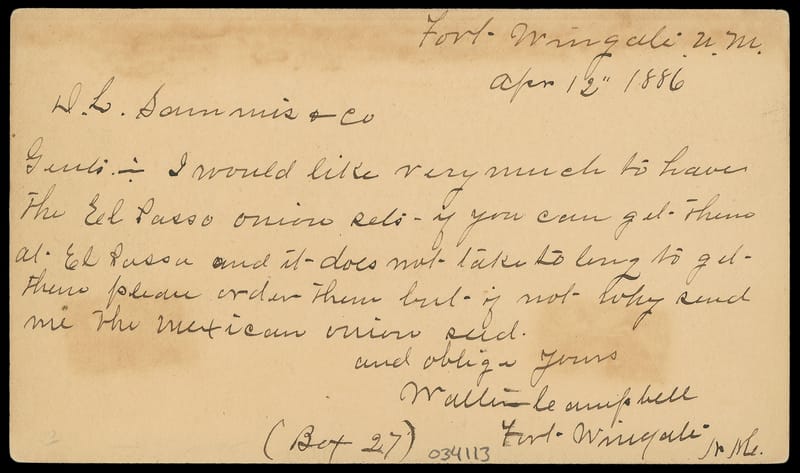 Fort Wingate N.M.
Apr 12" 1886
D.L. Sammis & Co
Gents :- I would like very much to have
the Eel Passo onion sets - if you can get them
at El Passo and it does not take to long to get
them please order them but if not why send
me the Mexican onion seed.
and oblige yours
Walter Campbell
(Box 27) Fort Wingate N.M.
034113